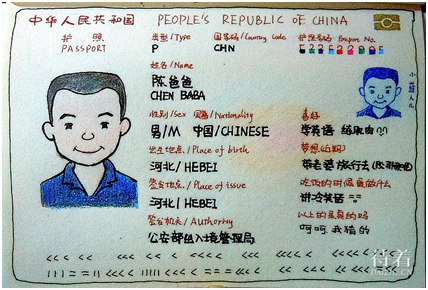 中华人民共和国 PEOPLE'S REPUBLIC OF CHINA
护照 类型/Type 国家码/Country Code 护照号码/Passport No.
PASSPORT P CHN
姓名/Name
陈爸爸
CHEN BABA
小
性别/Sex 国籍/Nationality 喜好
男/M 中国/CHINESE 学英语
出生地点/Place of birth 梦想(近期)
河北/HEBEI 带老婆旅行去
签发地点/Place of issue 吃饭的时候喜做什么
河北/HEBEI 讲冷笑话
签发机关/Authority 以上的是真的吗
公安部出入境管理局 呵呵 我猜的
待着